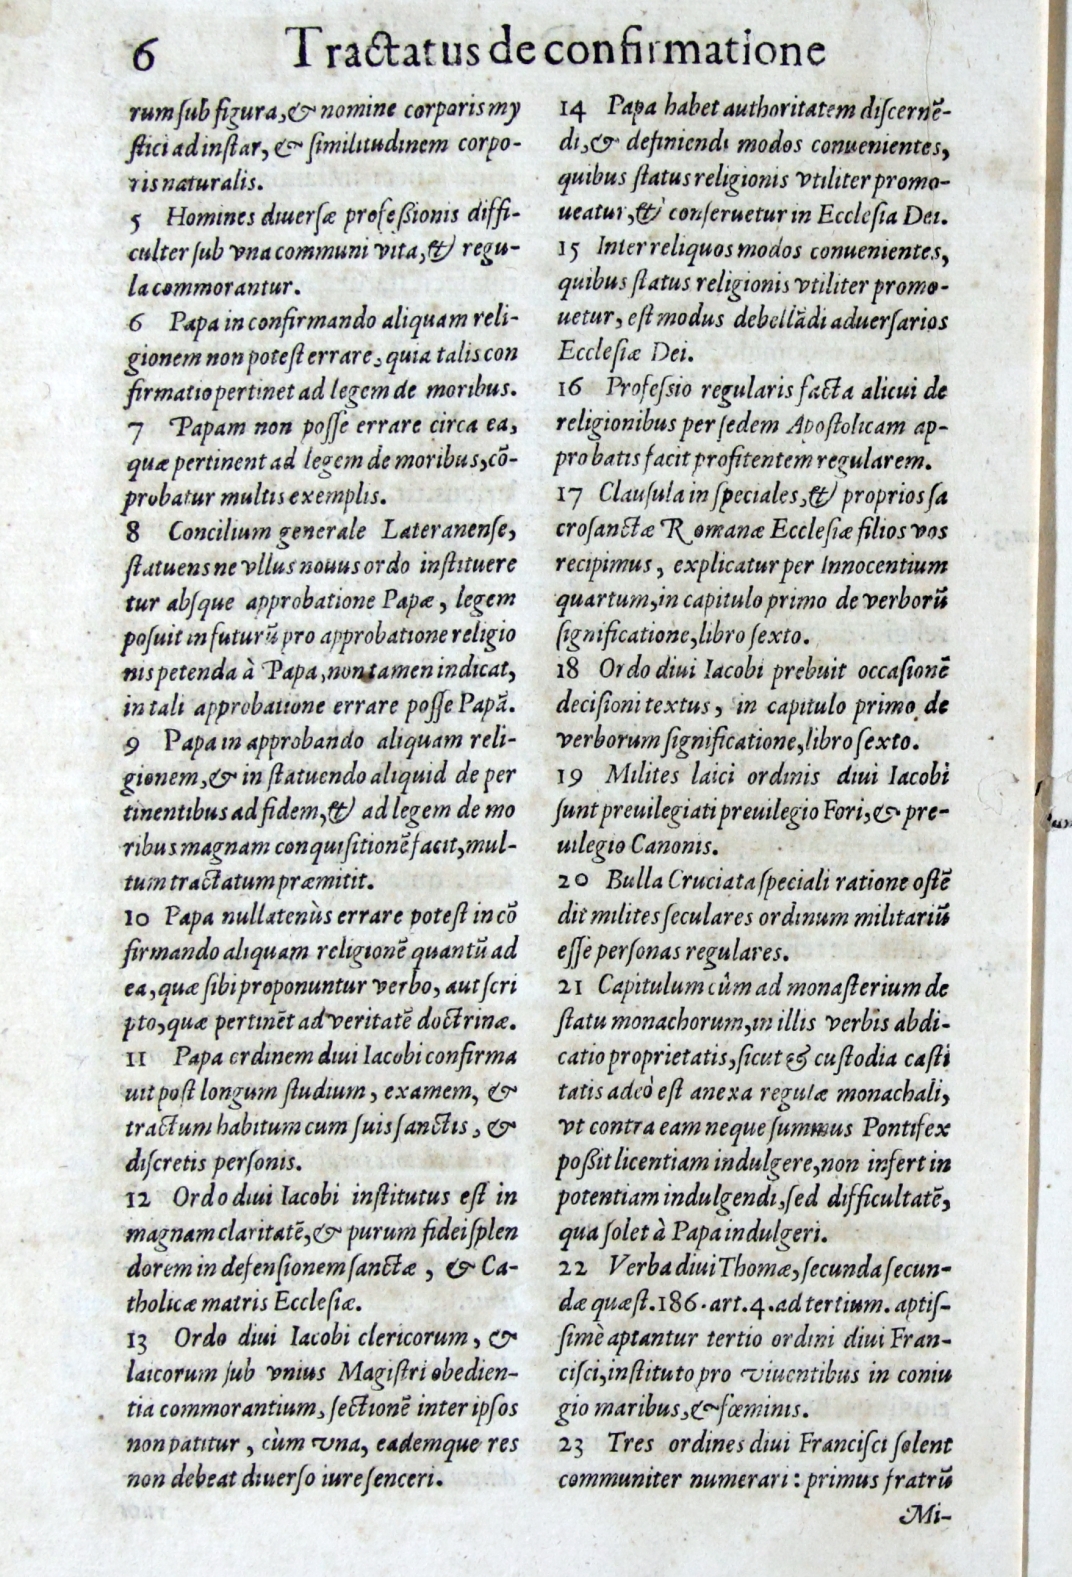 6 Tractatus de confirmatione
rum ſub figura, & nomine corporis my
ſtici ad inſtar, & ſimilitudinem corpo-
ris naturalis.
5 Homines diuerſæ profeſsionis diffi-
culter ſub vna communi vita, & regu-
la commorantur.
6 Papa in confirmando aliquam reli-
gionem non poteſt errare, quia talis con
firmatio pertinet ad legem de moribus.
7 Papam non poſſe errare circa ea,
quæ pertinent ad legem de moribus, cō-
probatur multis exemplis.
8 Concilium generale Lateranenſe,
ſtatuens ne vllus nouus ordo inſtituere
tur abſque approbatione Papæ, legem
poſuit in futurū pro approbatione religio
nis petenda à Papa, non tamen indicat,
in tali approbatione errare poſſe Papā.
9 Papa in approbando aliquam reli-
gionem, & in ſtatuendo aliquid de per
tinentibus ad fidem, & ad legem de mo
ribus magnam conquiſitionē facit, mul-
tum tractatum præmitit.
10 Papa nullatenùs errare poteſt in cō
firmando aliquam religionē quantū ad
ea, quæ ſibi proponuntur verbo, aut ſcri
pto, quæ pertinēt ad veritatē doctrinæ.
11 Papa ordinem diui Iacobi confirma
uit poſt longum ſtudium, examem, &
tractum habitum cum ſuis ſanctis, &
diſcretis perſonis.
12 Ordo diui Iacobi inſtitutus eſt in
magnam claritatē, & purum fidei ſplen
dorem in defenſionem ſanctæ, & Ca-
tholicæ matris Eccleſiæ.
13 Ordo diui Iacobi clericorum, &
laicorum ſub vnius Magiſtri obedien-
tia commorantium, ſectionē inter ipſos
non patitur, cùm vna, eademque res
non debeat diuerſo iure ſenceri.
14 Papa habet authoritatem diſcernē-
di, & definiendi modos conuenientes,
quibus ſtatus religionis vtiliter promo-
ueatur, & conſeruetur in Eccleſia Dei.
15 Inter reliquos modos conuenientes,
quibus ſtatus religionis vtiliter promo-
uetur, eſt modus debellādi aduerſarios
Eccleſiæ Dei.
16 Profeſsio regularis facta alicui de
religionibus per ſedem Apoſtolicam ap-
probatis facit profitentem regularem.
17 Clauſula in ſpeciales, & proprios ſa
croſanctæ Romanæ Eccleſiæ filios vos
recipimus, explicatur per Innocentium
quartum, in capitulo primo de verborū
ſignificatione, libro ſexto.
18 Ordo diui Iacobi prebuit occaſionē
deciſioni textus, in capitulo primo de
verborum ſignificatione, libro ſexto.
19 Milites laici ordinis diui Iacobi
ſunt preuilegiati preuilegio Fori, & pre-
uilegio Canonis.
20 Bulla Cruciata ſpeciali ratione oſtē
dit milites ſeculares ordinum militariū
eſſe perſonas regulares.
21 Capitulum cûm ad monaſterium de
ſtatu monachorum, in illis verbis abdi-
catio proprietatis, ſicut & cuſtodia caſti
tatis adeò eſt anexa regulæ monachali,
vt contra eam neque ſummus Pontifex
poſsit licentiam indulgere, non infert in
potentiam indulgendi, ſed difficultatē,
qua ſolet à Papa indulgeri.
22 Verba diui Thomæ, ſecunda ſecun-
dæ quæſt. 186. art. 4. ad tertium. aptiſ-
ſimè aptantur tertio ordini diui Fran-
ciſci, inſtituto pro viuentibus in coniu
gio maribus, & fœminis.
23 Tres ordines diui Franciſci ſolent
communiter numerari: primus fratrū
Mi-